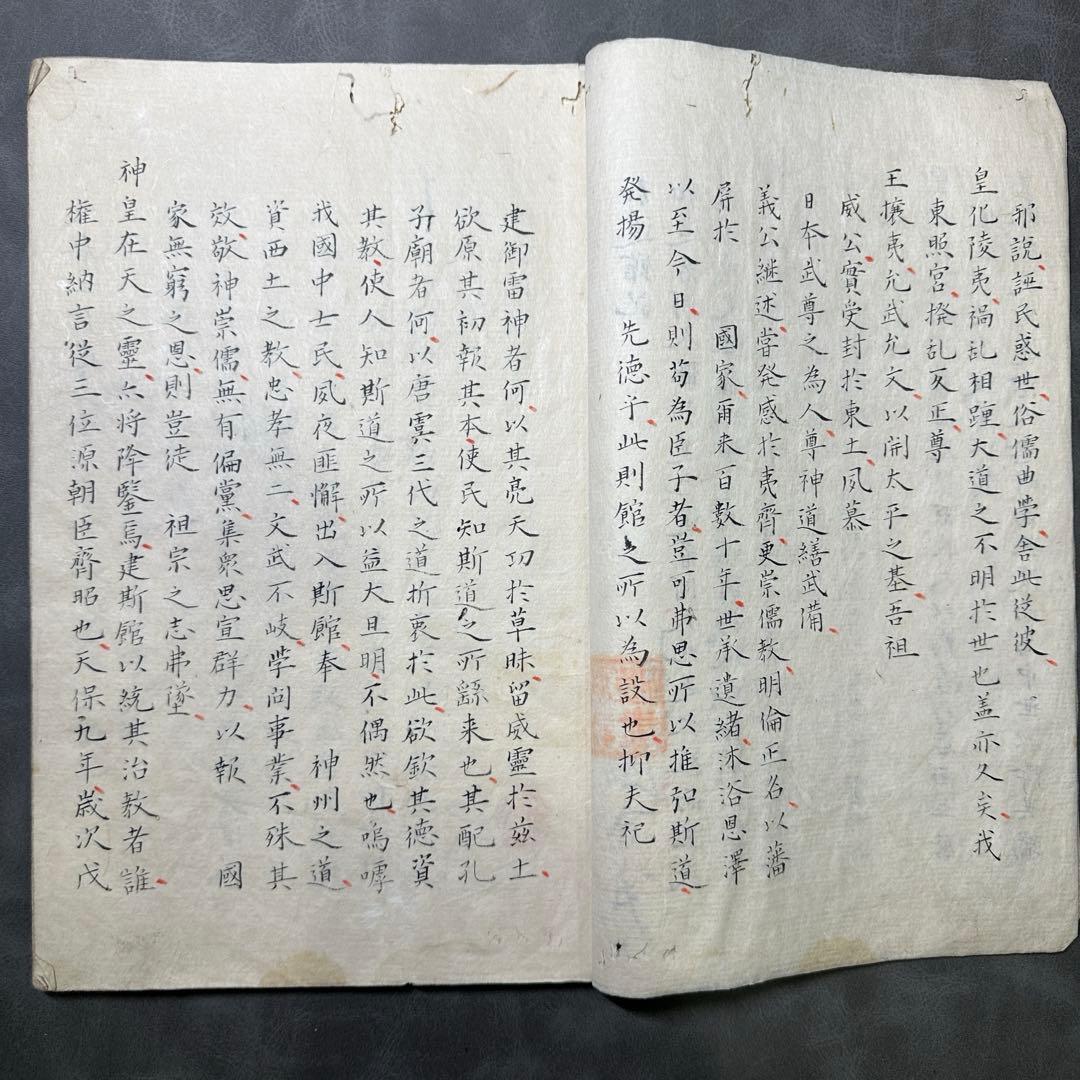 邪說誣民惑世俗儒曲學舍此從彼
皇化陵夷禍乱相踵大道之不明於世也盖亦久矣我
東照宮撥乱反正尊
王攘夷允武允文以開太平之基吾祖
威公實受封於東土夙慕
日本武尊之為人尊神道繕武備
義公継述甞発感於夷齊更崇儒教明倫正名以藩
屏於　国家爾来百數十年世承遺緒沐浴恩澤
以至今日則苟為臣子者豈可弗思所以推弘斯道
発揚　先德乎此則館之所以為設也抑夫祀
建御雷神者何以其亮天功於草昧留威靈於茲土
欲原其初報其本使民知斯道之所繇来也其配孔
子廟者何以唐虞三代之道折衷於此欲欽其德資
其教使人知斯道之所以益大且明不偶然也嗚呼
我國中士民夙夜匪懈出入斯館奉　神州之道
資西土之教忠孝無二文武不岐学问事業不殊其
效敬神崇儒無有偏黨集衆思宣群力以報　國
家無窮之恩則豈徒　祖宗之志弗墜
神皇在天之靈亦将降鑒焉建斯館以統其治教者誰
権中納言従三位源朝臣齊昭也天保九年歳次戊